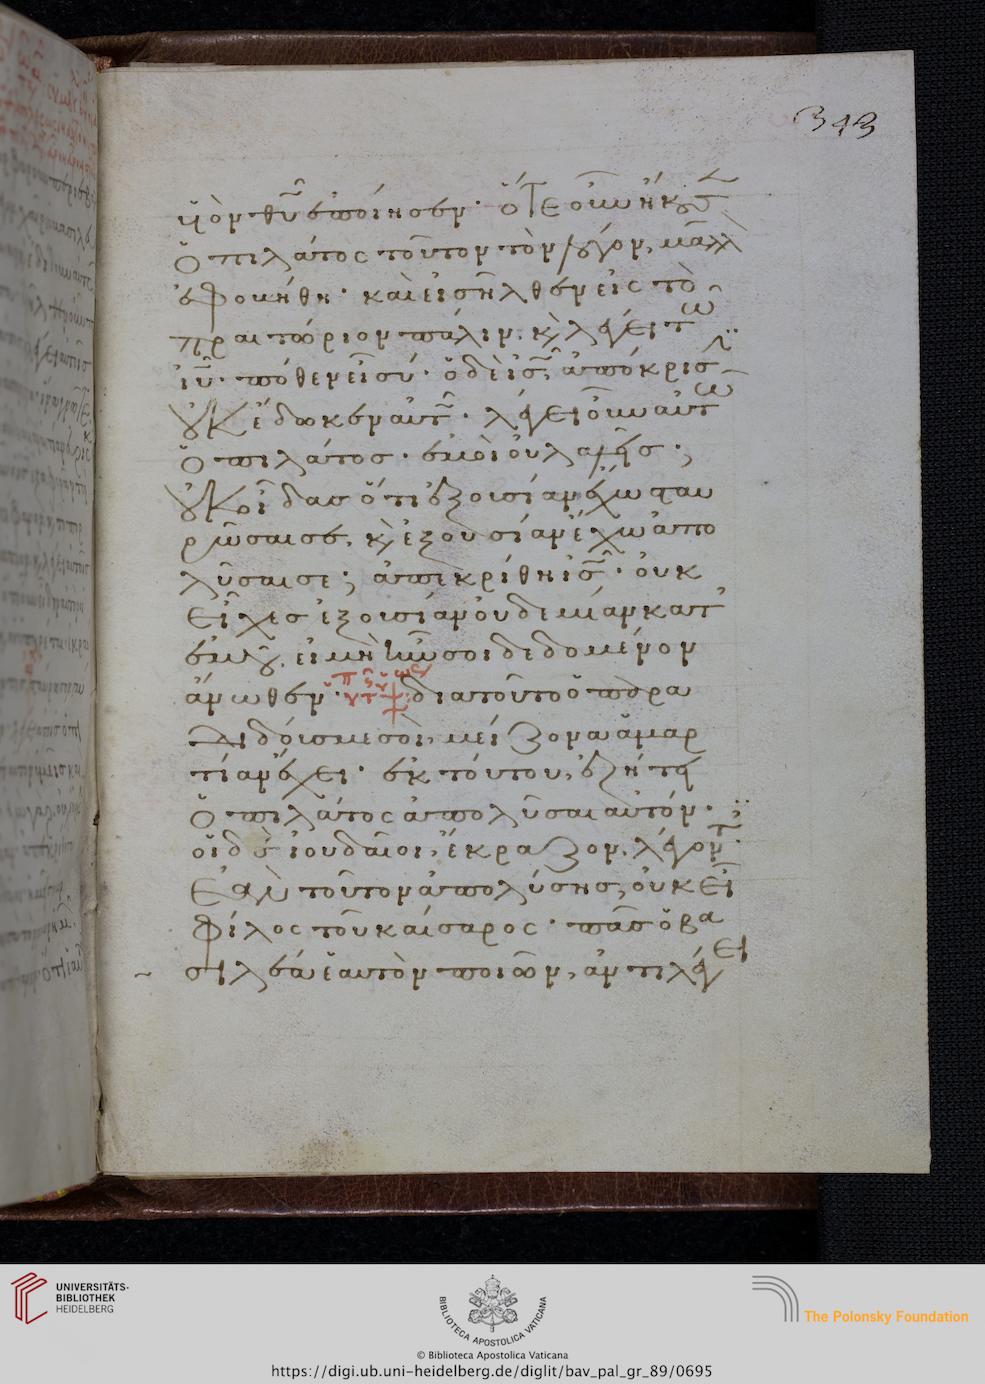 343
ὑὸν θῦ ἐποίησεν· ὅτε οὖν ἤκουσ
ὁ πιλάτος τοῦτον τὸν λόγον, μᾶλλ
ἐφοβήθη· καὶ εἰσῆλθεν εἰς τὸ
πραιτώριον πάλιν. κ λέγει τῶ
ἰῦ· πόθεν εἶ σύ· ὁ δὲ ἰς ἀπόκρισ
οὐκ ἔδωκεν αὐτ· λέγει οὖν αὐτῶ
ὁ πιλάτος· ἐμοὶ οὐ λαλεῖς;
οὐκ οἶδας ὅτι ἐξουσίαν ἔχω σταυ
ρῶσαι σε, κ ἐξουσίαν ἔχω ἀπο
λῦσαι σε; ἀπεκρίθη ἰς· οὐκ
εἶχες ἐξουσίαν οὐδεμίαν κατ'
ἐμοῦ, εἰ μὴ ἦν σοι δεδομένον
ἄνωθεν· διὰ τοῦτο ὁ παρα
διδούς με σοὶ, μείζονα ἁμαρ
τίαν ἔχει· ἐκ τούτου, ἐζήτει
ὁ πιλάτος ἀπολῦσαι αὐτόν·
οἱ δὲ ἰουδαῖοι, ἔκραζον, λέγοντ
ἐὰν τοῦτον ἀπολύσης, οὐκ εἶ
φίλος τοῦ καίσαρος· πᾶς ὁ βα
σιλέα ἑαυτὸν ποιῶν, ἀντιλέγει
UNIVERSITÄTS-
BIBLIOTHEK
HEIDELBERG
BIBLIOTECA APOSTOLICA VATICANA
The Polonsky Foundation
© Biblioteca Apostolica Vaticana
https://digi.ub.uni-heidelberg.de/diglit/bav_pal_gr_89/0695